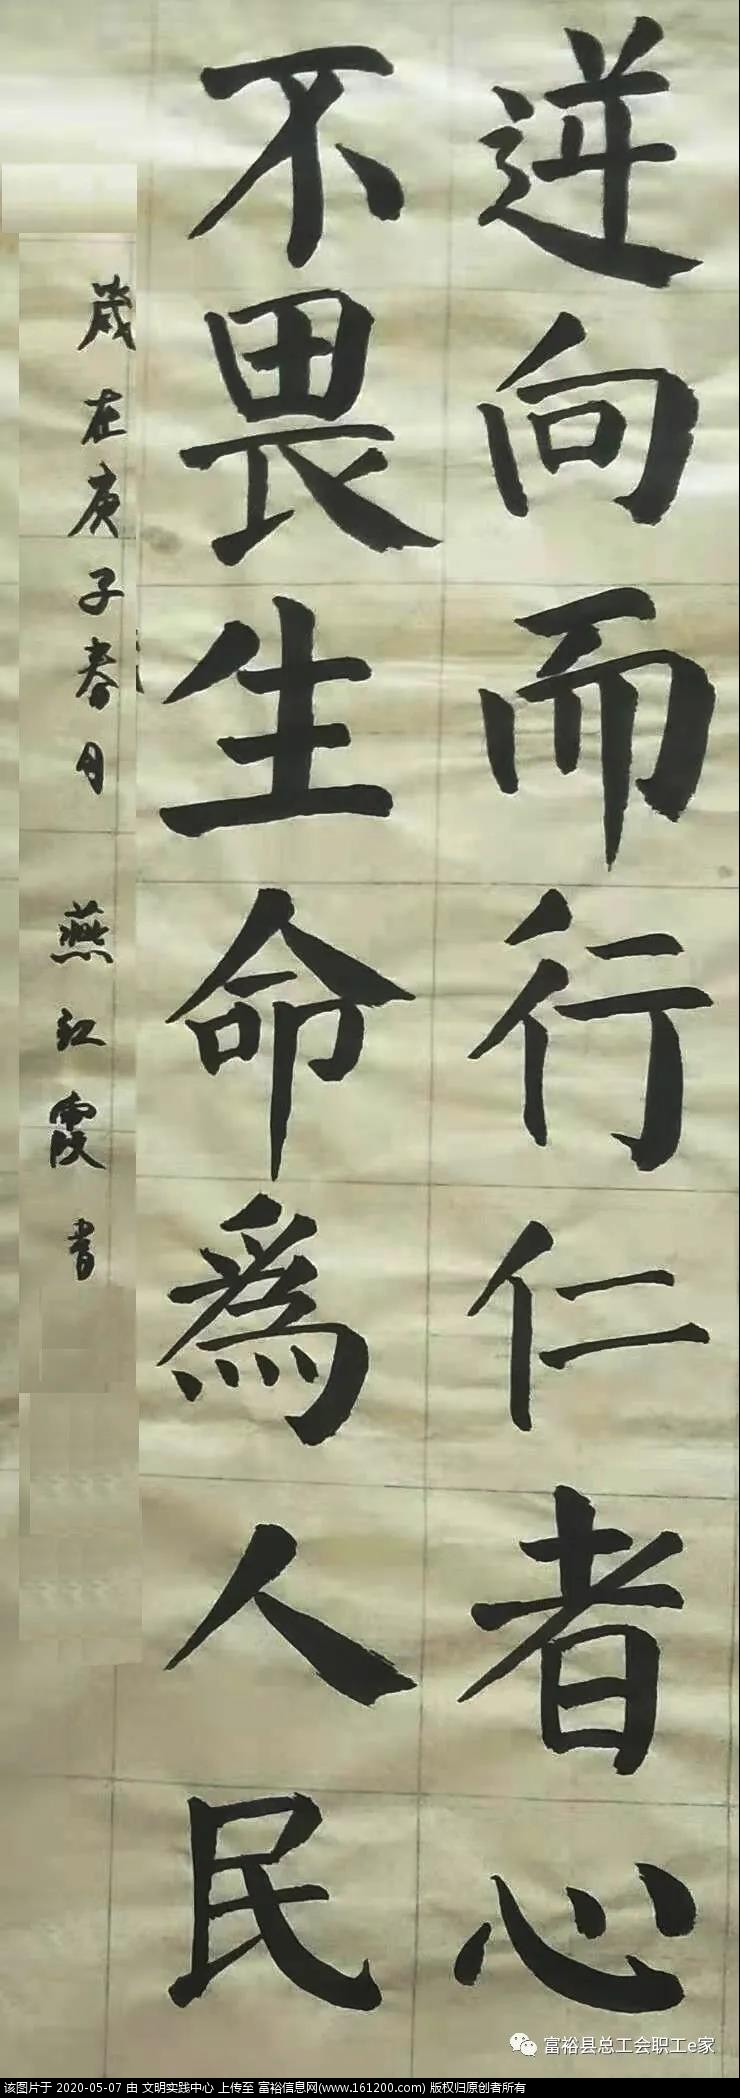 逆向而行仁者心
不畏生命為人民
歲在庚子春月 燕红霞書
富裕县总工会职工e家
该图片于 2020-05-07 由 文明实践中心 上传至 富裕信息网(www.161200.com) 版权归原创者所有